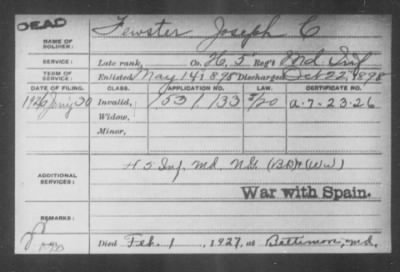 DEAD
NAME OF SOLDIER: Fewster Joseph C
SERVICE: Late rank, Co. H, 5" Reg't Md Inf
TERM OF SERVICE: Enlisted May 14 1898 Discharged Oct 22, 1898
DATE OF FILING. CLASS. APPLICATION NO. LAW. CERTIFICATE NO.
1926 30 Invalid, 1531,133 5/20 a-7-23-26
Widow,
Minor,
ADDITIONAL SERVICES: H 5 Inf. Md. N.G. (WW)
War with Spain.
REMARKS:
Died Feb. 1, 1927, at Baltimore, Md.